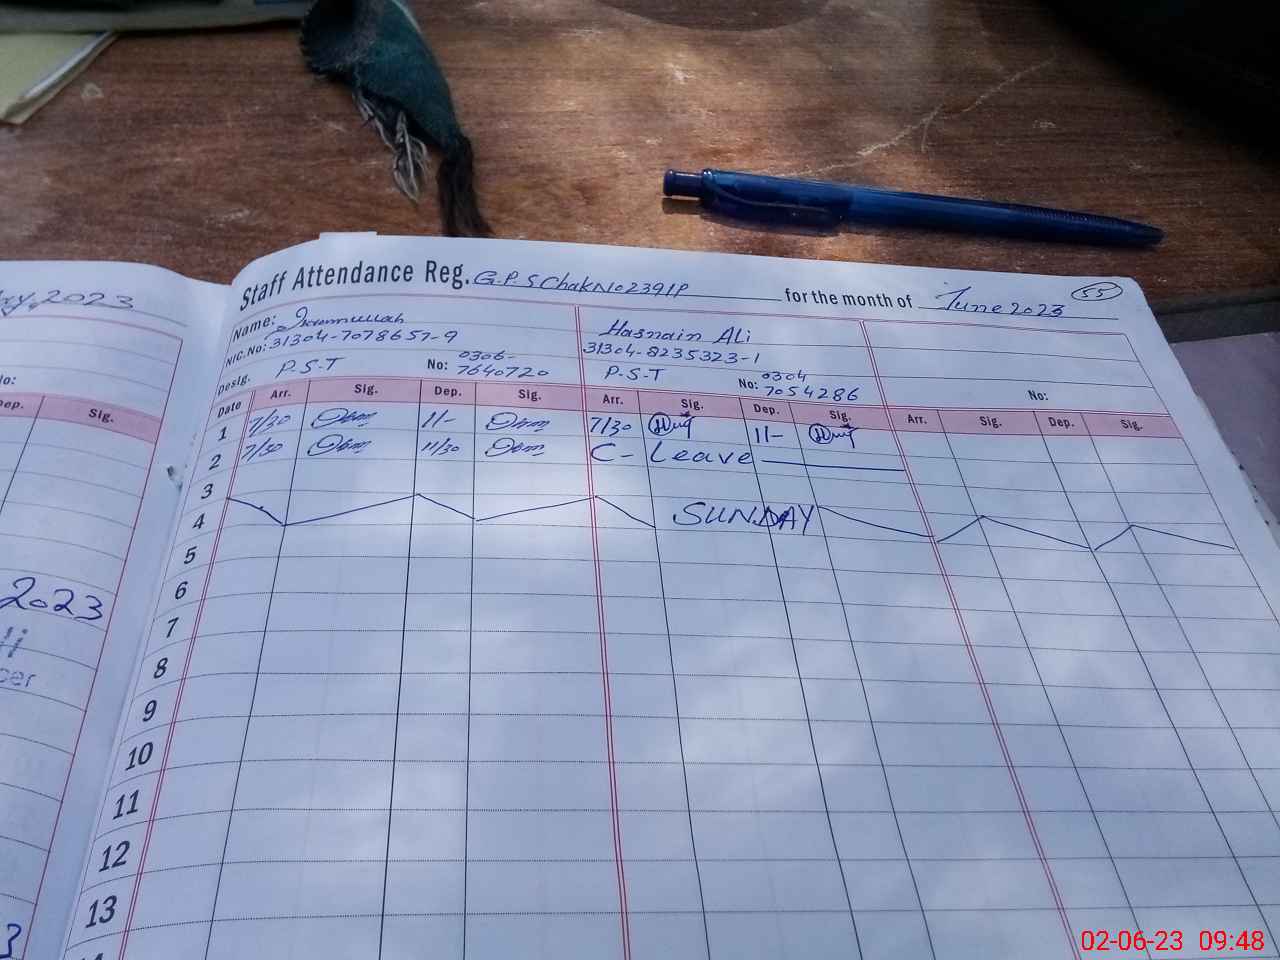 2023
No:
Dep. Sig.
2023
Staff Attendance Reg. G.P.S Chak No 239/P for the month of June 2023 55
Name: Ikramullah Hasnain Ali
NIC.No: 31304-7078657-9 31304-8235323-1
Desig. P.S.T No: 0306-7640720 P.S.T No: 0304 7054286 No:
Date Arr. Sig. Dep. Sig. Arr. Sig. Dep. Sig. Arr. Sig. Dep. Sig.
1 7/30 11/- 7/30 11/-
2 7/30 11/30 C- Leave
3
4 SUNDAY
5
6
7
8
9
10
11
12
13
02-06-23 09:48